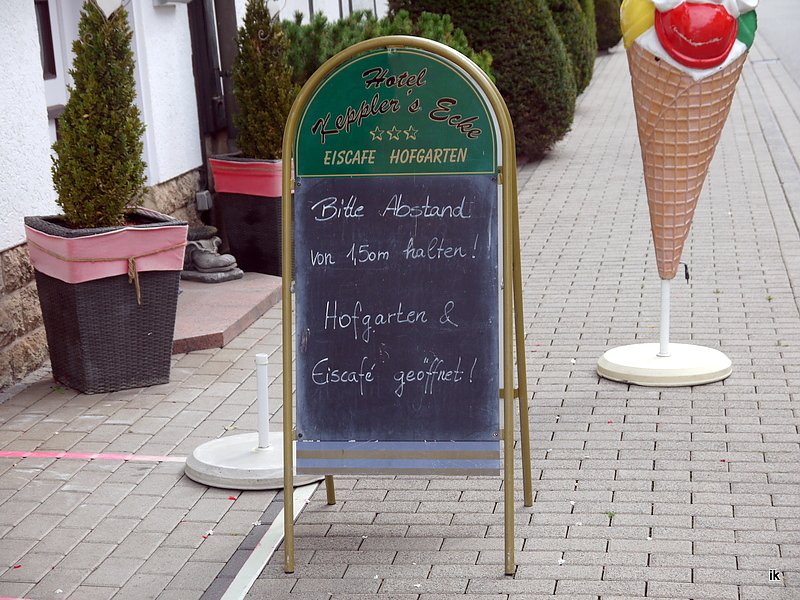 Hotel
Keppler's Ecke
EISCAFE HOFGARTEN
Bitte Abstand
von 1,50m halten!
Hofgarten &
Eiscafé geöffnet!
ik